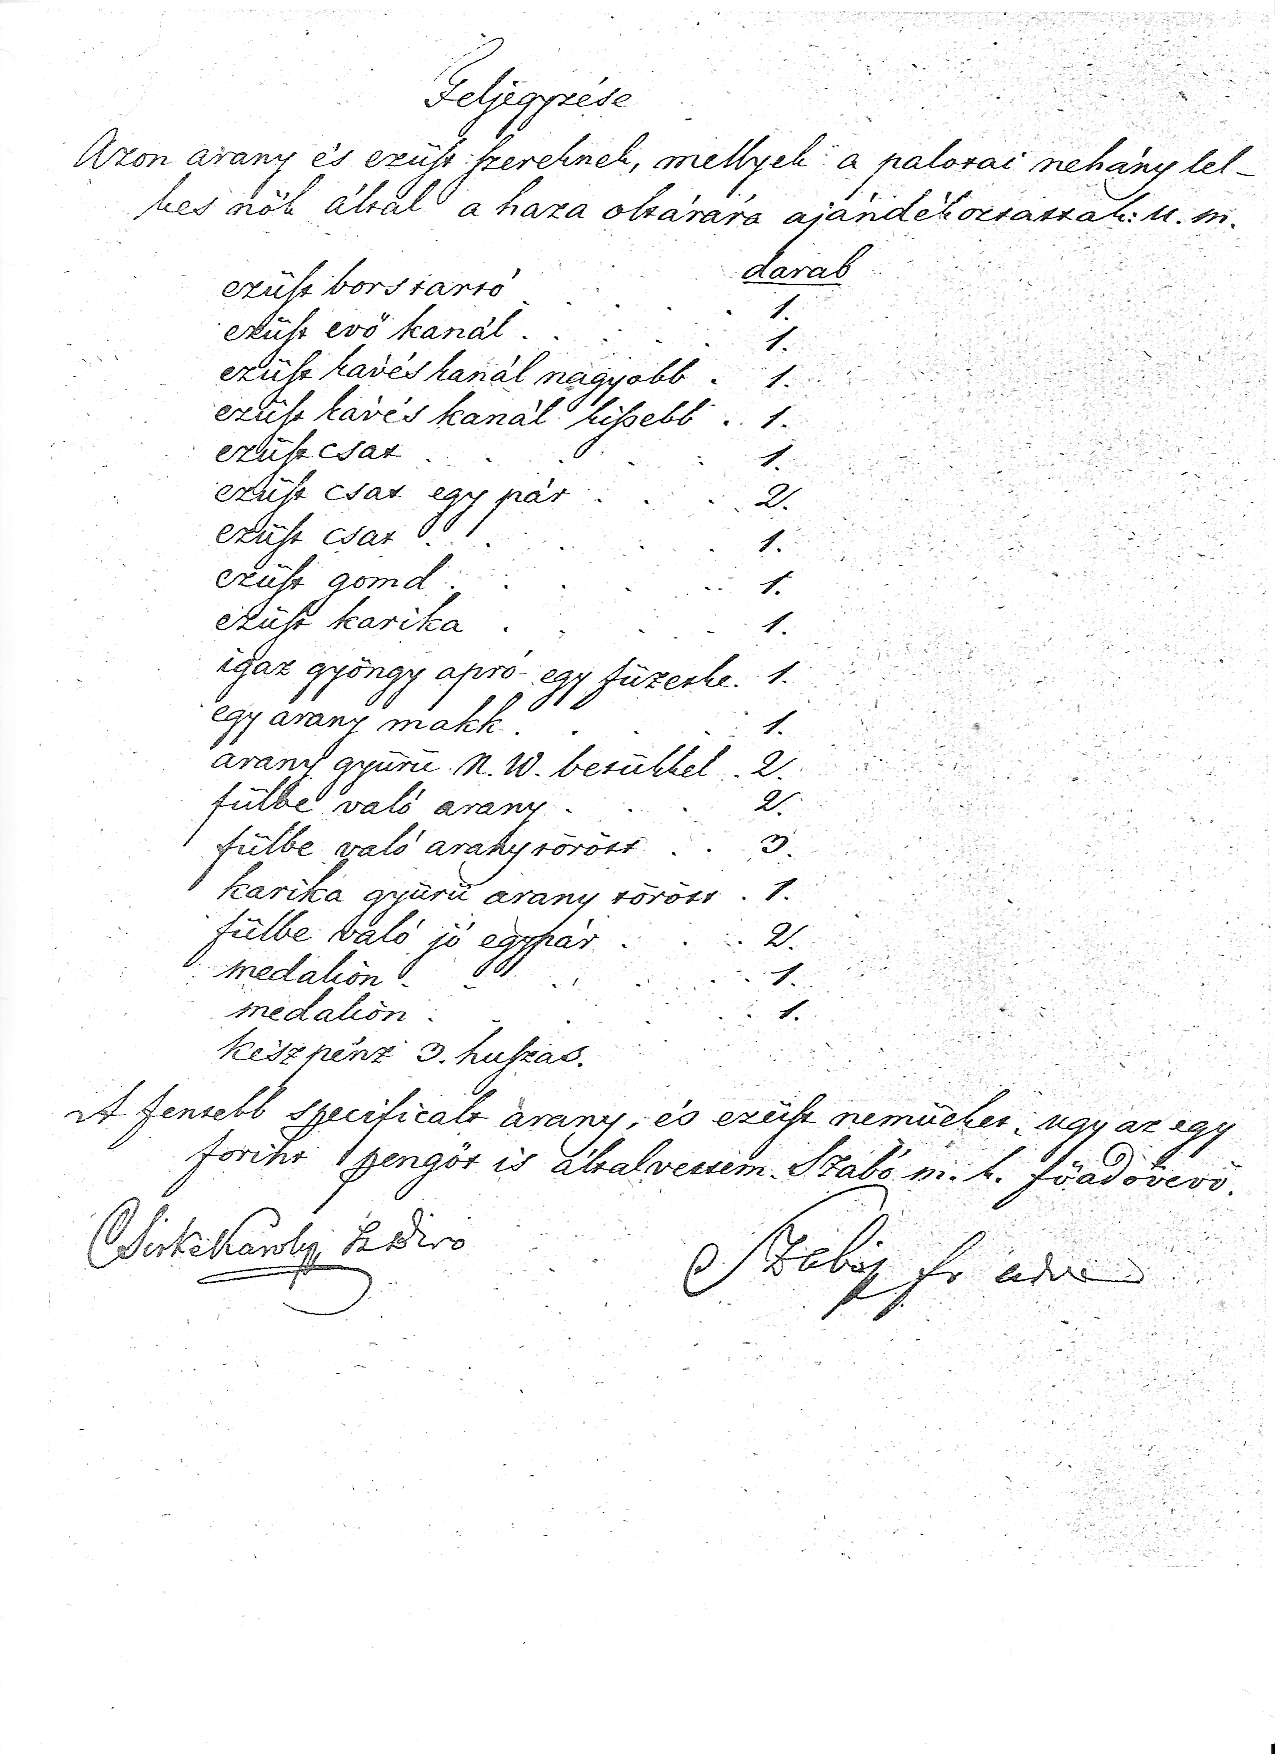 Feljegyzése
Azon arany és ezüst szereknek, mellyek a palotai nehány lel-
kes nők által a haza oltárára ajándékoztattak: u. m.
darab
ezüst bors tartó . . . . 1.
ezüst evő kanál . . . . . 1.
ezüst kávés kanál nagyobb . 1.
ezüst kávés kanál kissebb . 1.
ezüst csat . . . . . 1.
ezüst csat egy pár . . . 2.
ezüst csat . . . . . 1.
ezüst gomd . . . . 1.
ezüst karika . . . . 1.
igaz gyöngy apró egy füzetke. 1.
egy arany makk . . . . 1.
arany gyürü N. W. betükkel . 2.
fülbe való arany . . . 2.
fülbe való arany törött . . 3.
karika gyürü arany törött . 1.
fülbe való jó egy pár . . . 2.
medalión . . . . . 1.
medalión . . . . . 1.
kész pénz 3. huszas.
A fentebb specificalt arany, és ezüst nemüeket, ugy az egy
forint pengőt is általvettem. Szabó m. k. főadóvevő.
Károly
Szabó